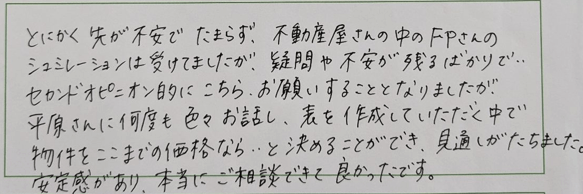 とにかく先が不安でたまらず、不動産屋さんの中のFPさんの
シュミレーションは受けてましたが、疑問や不安が残るばかりで‥
セカンドオピニオン的にこちら、お願いすることとなりましたが
平原さんに何度も色々お話し、表を作成していただく中で
物件をここまでの価格なら‥と決めることができ、見通しがたちました。
安定感があり、本当にご相談できて良かったです。